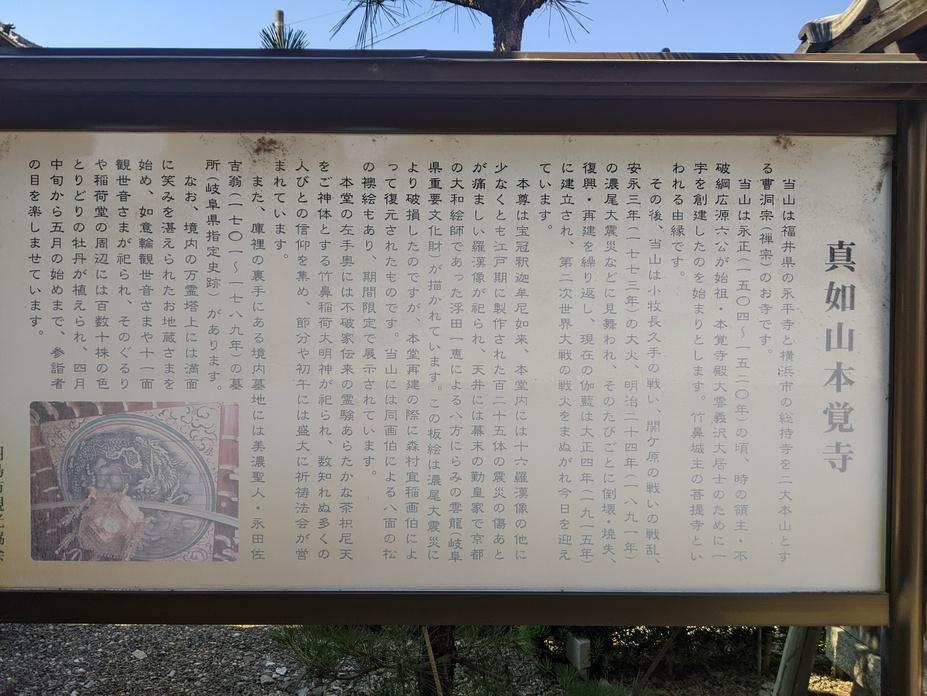 真如山本覚寺
当山は福井県の永平寺と横浜市の総持寺を二大本山とす
る曹洞宗(禅宗)のお寺です。
当山は永正(一五〇四〜一五二〇年の頃、時の領主・不
破綱広源六公が始祖・本覚寺殿大雲義沢大居士のために一
宇を創建したのを始まりとします。竹鼻城主の菩提寺とい
われる由縁です。
その後、当山は小牧長久手の戦い、関ケ原の戦いの戦乱、
安永三年(一七七三年)の大火、明治二十四年(一八九一年)
の濃尾大震災などに見舞われ、そのたびごとに倒壊・焼失、
復興・再建を繰り返し、現在の伽藍は大正四年(一九一五年)
に建立され、第二次世界大戦の戦火をまぬがれ今日を迎え
ています。
本尊は宝冠釈迦牟尼如来、本堂内には十六羅漢像の他に
少なくとも江戸期に製作された百二十五体の震災の傷あと
が痛ましい羅漢像が祀られ、天井には幕末の勤皇家で京都
の大和絵師であった浮田一恵による八方にらみの雲龍(岐阜
県重要文化財)が描かれています。この板絵は濃尾大震災に
より破損したのですが、本堂再建の際に森村宜稲画伯によ
って復元されたものです。当山には同画伯による八面の松
の襖絵もあり、期間限定で展示されています。
本堂の左手奥には不破家伝来の霊験あらたかな荼枳尼天
をご神体とする竹鼻稲荷大明神が祀られ、数知れぬ多くの
人びとの信仰を集め、節分や初午には盛大に祈祷法会が営
まれています。
また、庫裡の裏手にある境内墓地には美濃聖人・永田佐
吉翁(一七〇一〜一七八九年)の墓
所(岐阜県指定史跡)があります。
なお、境内の万霊塔上には満面
に笑みを湛えられたお地蔵さまを
始め、如意輪観世音さまや十一面
観世音さまが祀られ、そのぐるり
や稲荷堂の周辺には百数十株の色
とりどりの牡丹が植えられ、四月
中旬から五月の始めまで、参詣者
の目を楽しませています。